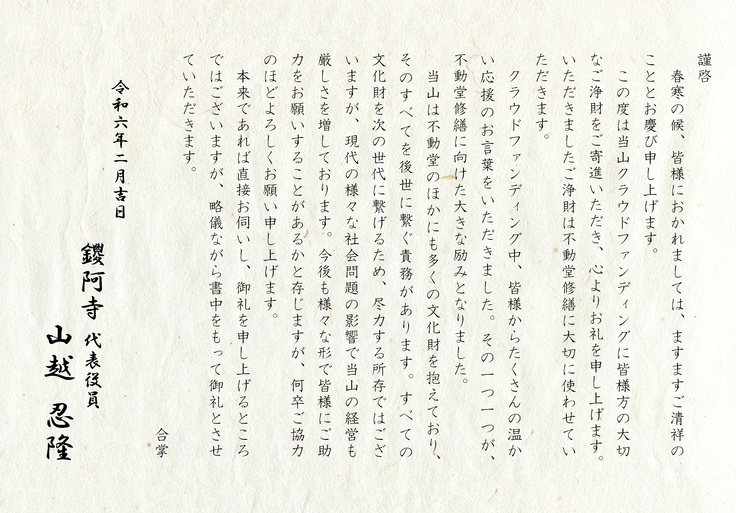 謹啓
春寒の候、皆様におかれましては、ますますご清祥の
こととお慶び申し上げます。
この度は当山クラウドファンディングに皆様方の大切
なご浄財をご寄進いただき、心よりお礼を申し上げます。
いただきましたご浄財は不動堂修繕に大切に使わせてい
ただきます。
クラウドファンディング中、皆様からたくさんの温か
い応援のお言葉をいただきました。その一つ一つが、
不動堂修繕に向けた大きな励みとなりました。
当山は不動堂のほかにも多くの文化財を抱えており、
そのすべてを後世に繋ぐ責務があります。すべての
文化財を次の世代に繋げるため、尽力する所存ではござ
いますが、現代の様々な社会問題の影響で当山の経営も
厳しさを増しております。今後も様々な形で皆様にご助
力をお願いすることがあるかと存じますが、何卒ご協力
のほどよろしくお願い申し上げます。
本来であれば直接お伺いし、御礼を申し上げるところ
ではございますが、略儀ながら書中をもって御礼とさせ
ていただきます。
合掌
令和六年二月吉日
鑁阿寺 代表役員
山越 忍隆